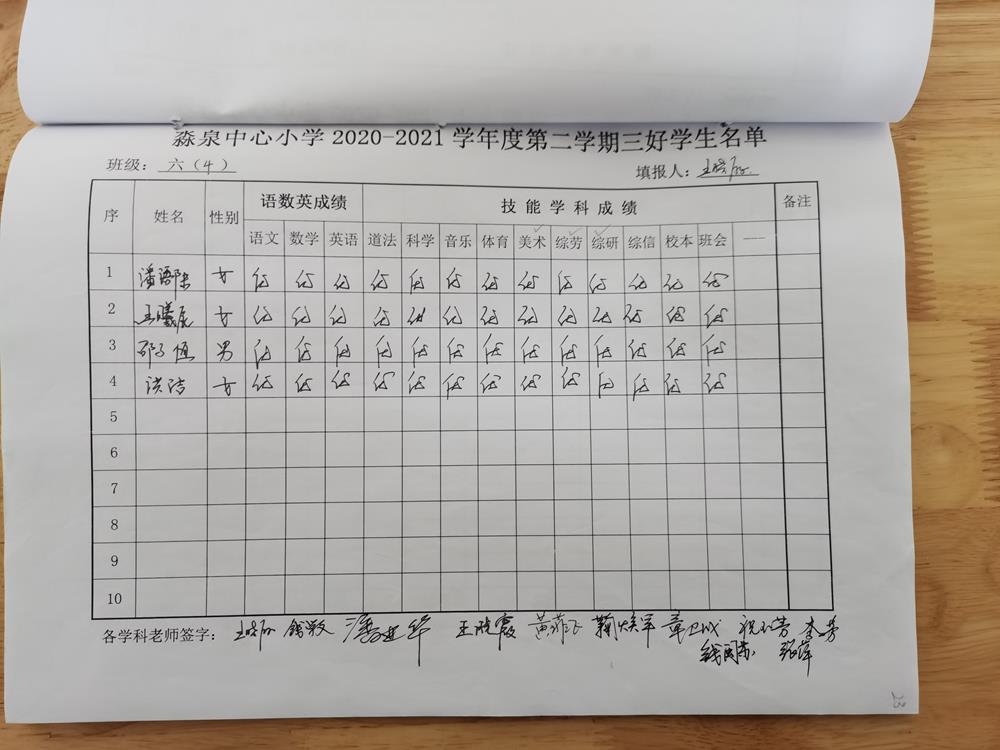 淼泉中心小学2020-2021学年度第二学期三好学生名单
班级：六（4） 填报人：
序 姓名 性别 语数英成绩 技能学科成绩 备注
语文 数学 英语 道法 科学 音乐 体育 美术 综劳 综研 综信 校本 班会 —
1 女 优 优 优 优 优 优 优 优 优 优 优 优 优
2 王曦辰 女 优 优 优 优 优 优 优 优 优 优 优 优 优
3 邵子恒 男 优 优 优 优 优 优 优 优 优 优 优 优 优
4 洪洁 女 优 优 优 优 优 优 优 优 优 优 优 优 优
5
6
7
8
9
10
各学科老师签字： 钱敏 王晓霞 鞠焕军 章卫成
张萍